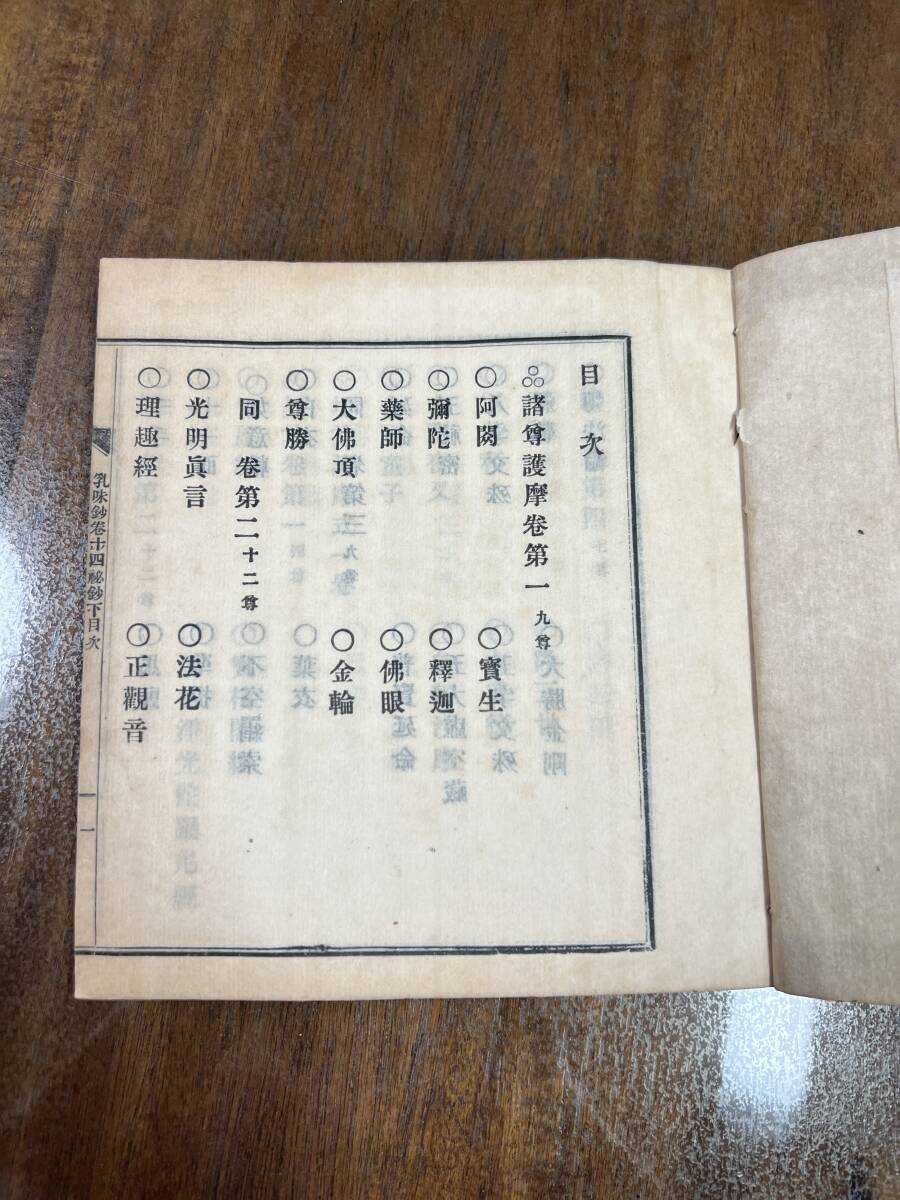 目次
諸尊護摩卷第一九尊
〇阿閦 〇寶生
〇彌陀 〇釋迦
〇藥師 〇佛眼
〇大佛頂 〇金輪
〇尊勝
同卷第二十二尊
〇光明眞言 〇法花
〇理趣經 〇正觀音
乳味鈔卷十四祕鈔下目次 一